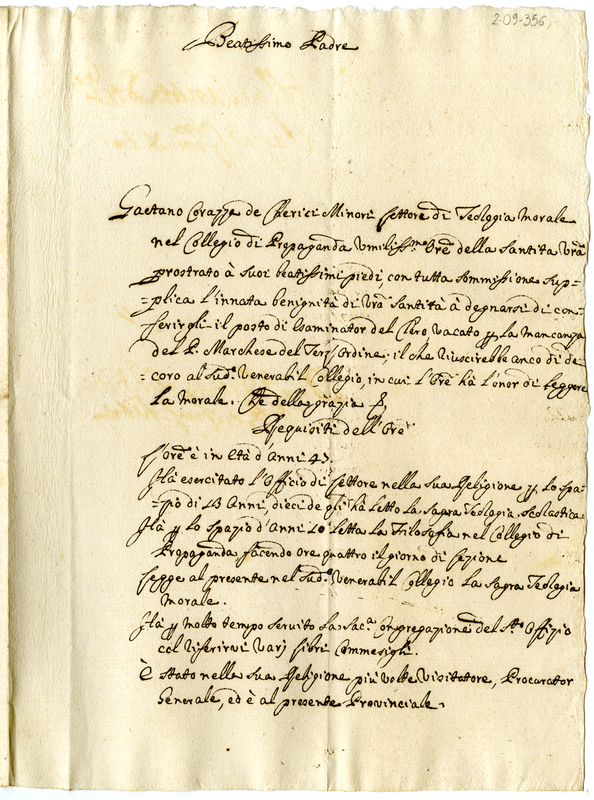 2-09-356,
Beatissimo Padre
Gaetano Corazza de Cherici Minori Lettore di Teologia Morale
nel Collegio di Propaganda Umiliss.mo Ore della Santita Vrã
prostrato à suoi beatissimi piedi, con tutta sommissione sup=
=plica l'innata benignità di Vrã Santità à degnarsi di con=
=ferirgli il posto di Esaminator del Clero vacato p la mancanza
del P. Marchese del Terz'Ordine; il che riuscirebbe anco di de=
=coro al Sud.o Venerabil Collegio, in cui l'Ore hà l'onor di leggere
la Morale. Che della grazia &
Requisiti dell'Ore
L'Ore è in Età d'Anni 43.
Hà esercitato l'Officio di Lettore nella sua Religione p lo spa=
=zio di Anni, dieci de gli hà letto la Sagra Teologia Scolastica
Hà p lo spazio d'Anni 10 letta la Filosofia nel Collegio di
Propaganda facendo ore quattro il giorno di Lezione
Legge al presente nel Sud.o Venerabil Collegio la Sagra Teologia
Morale.
Hà p molto tempo servito la Sac.a Congregazione del St.o Offizio
col riferirvi varj Libri Commessigli.
È stato nella sua Religione più volte Visitatore, Procurator
Generale, ed è al presente Provinciale.